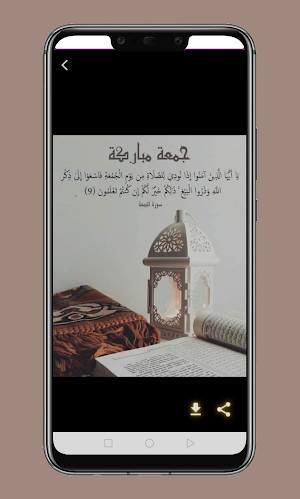 جمعة مباركة
يَا أَيُّهَا الَّذِينَ آمَنُوا إِذَا نُودِيَ لِلصَّلَاةِ مِن يَوْمِ الْجُمُعَةِ فَاسْعَوْا إِلَىٰ ذِكْرِ
اللَّهِ وَذَرُوا الْبَيْعَ ۚ ذَٰلِكُمْ خَيْرٌ لَّكُمْ إِن كُنتُمْ تَعْلَمُونَ (9)
سورة الجمعة